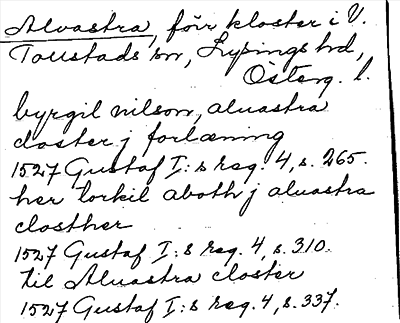 Alvastra, förr kloster i V.
Tollstads sn, Lysings hd,
Österg. l.
byrgil nilson, aluastra
closter j forlæning
1527 Gustaf I:s reg. 4, s. 265.
her torkil aboth j aluastra
closther
1527 Gustaf I:s reg. 4, s. 310.
til Aluastra closter
1527 Gustaf I:s reg. 4, s. 337.